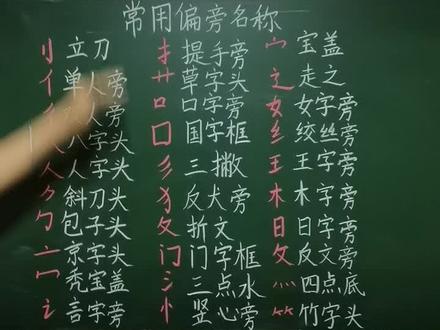 常用偏旁名称
刂 立刀 扌 提手旁 宀 宝盖
亻 单人旁 艹 草字头 辶 走之
人旁 口 口字旁 女 女字旁
八字头 囗 国字框 纟 绞丝旁
人 人字头 彡 三撇 王 王字旁
⺈ 斜刀头 犭 反犬旁 木 木字旁
勹 包子头 夂 折文 日 日字旁
亠 京字头 门 门字框 攵 反文旁
冖 秃宝盖 氵 三点水 灬 四点底
讠 言字旁 忄 竖心旁 ⺮ 竹字头